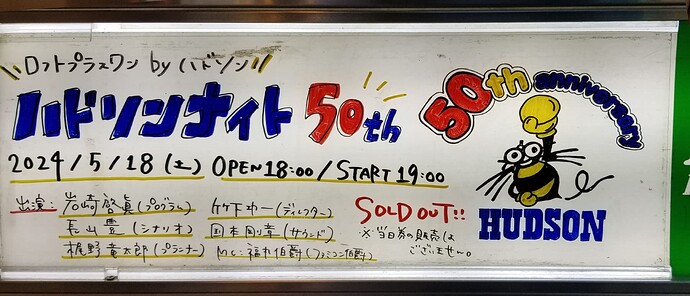 ロフトプラスワン by ハドソン
ハドソンナイト 50th
2024/5/18(土) OPEN 18:00 / START 19:00
出演: 岩崎啓眞(プログラム) 竹下功一(ディレクター)
長山豊(シナリオ) 国本剛章(サウンド)
梶野竜太郎(プランナー) MC:福市伯爵(ファミコン伯爵)
SOLD OUT!!
※当日券の販売は
ございません。
50th anniversary
HUDSON